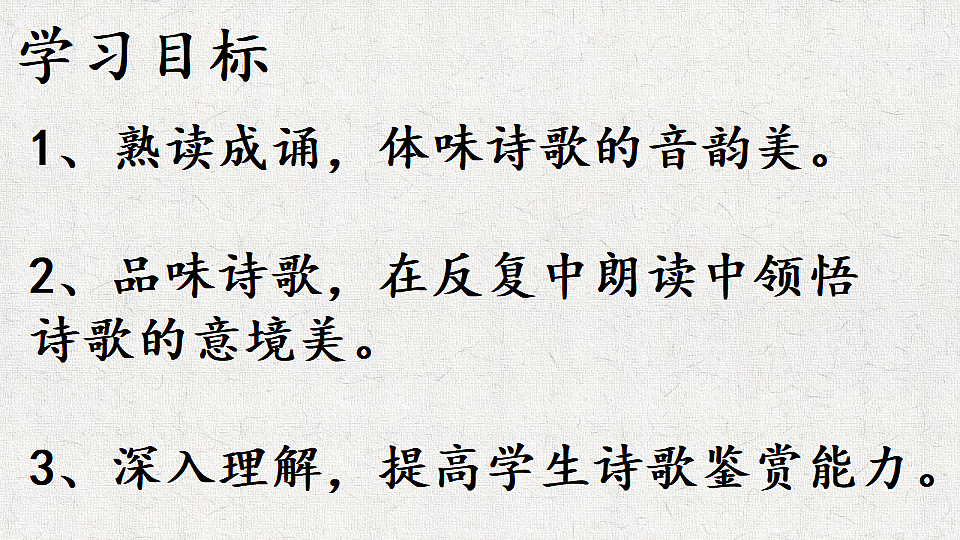 学习目标
1、熟读成诵，体味诗歌的音韵美。
2、品味诗歌，在反复中朗读中领悟
诗歌的意境美。
3、深入理解，提高学生诗歌鉴赏能力。